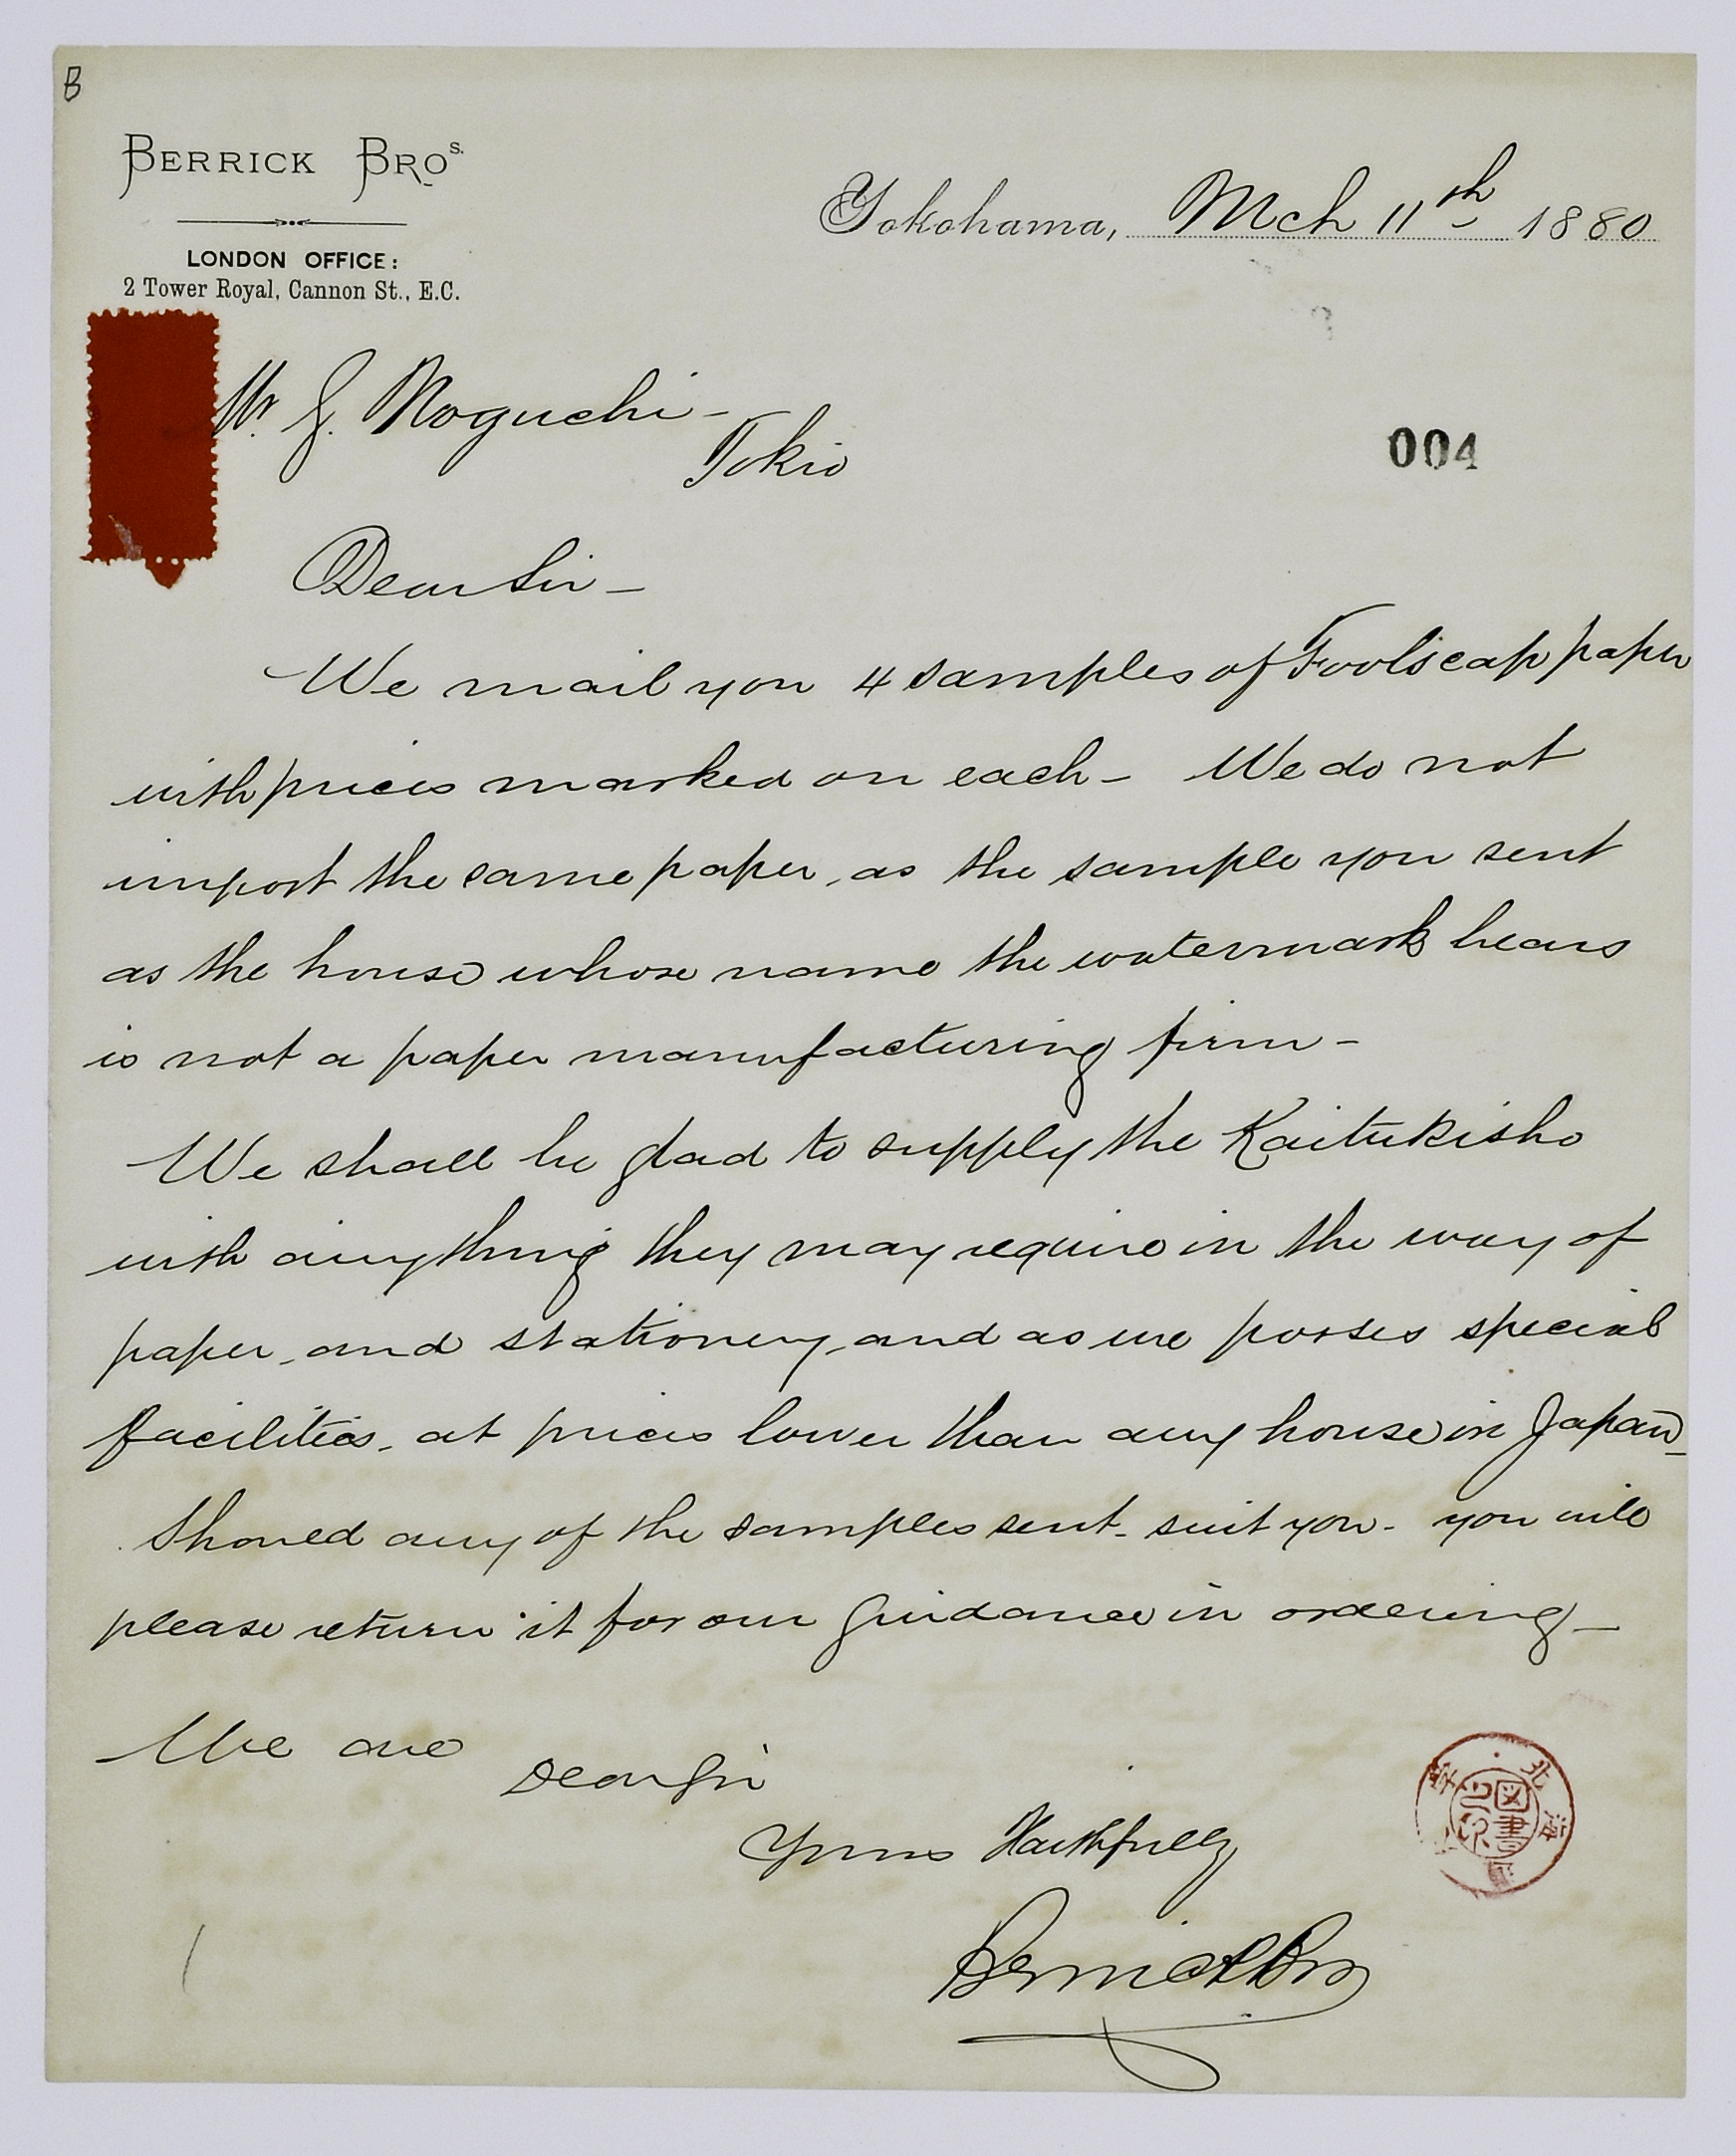 B
BERRICK BROS.
LONDON OFFICE:
2 Tower Royal, Cannon St., E.C.
Yokohama, Mch 11th 1880
Mr. G. Noguchi -
Tokio
004
Dear Sir -
We mail you 4 samples of Foolscap paper
with prices marked on each - We do not
import the same paper, as the sample you sent
as the house whose name the watermark bears
is not a paper manufacturing firm -
We shall be glad to supply the Kaitukisho
with anything they may require in the way of
paper, and stationery, and as we posses special
facilities, at prices lower than any house in Japan -
Should any of the samples sent - suit you - you will
please return it for our guidance in ordering -
We are
Dear Sir
Yours Faithfully
Berrick Bros
北海
図書
之印